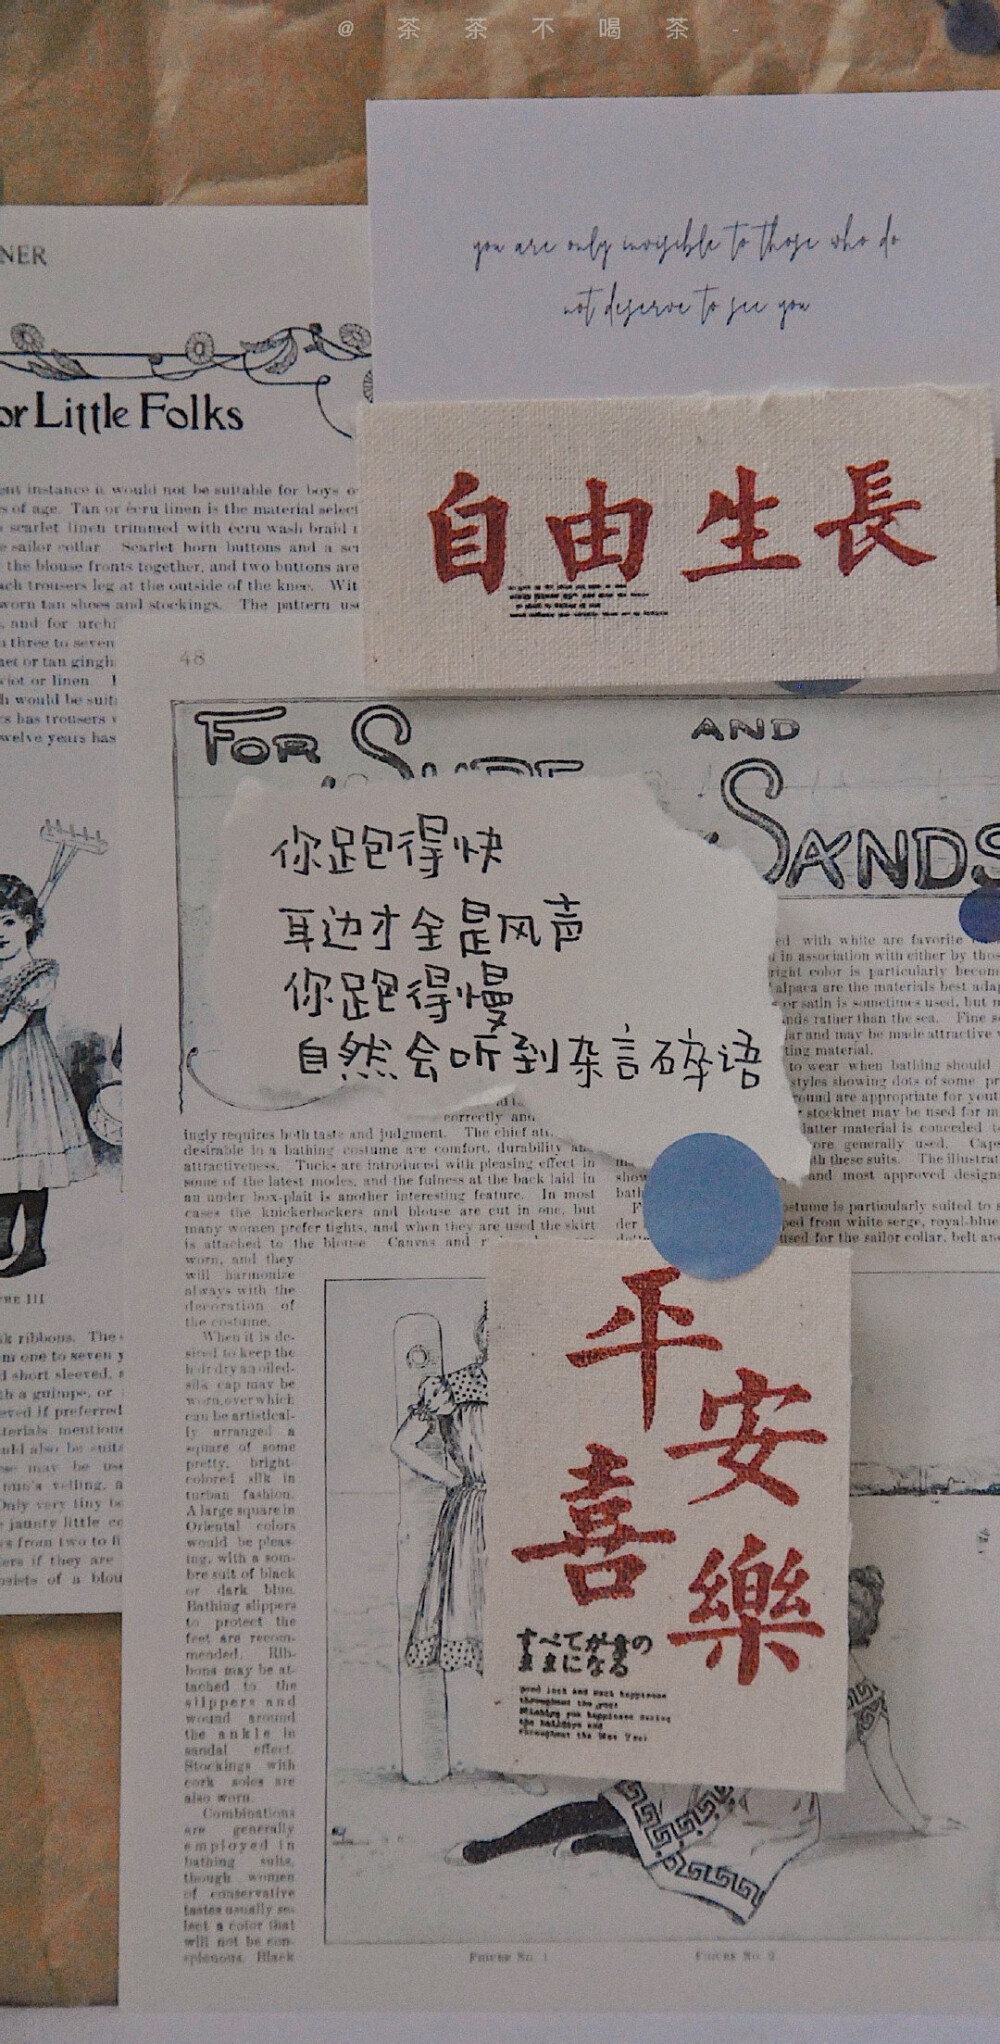 @茶茶不喝茶-
you are only invisible to those who do
not deserve to see you
NER
or Little Folks
自由生長
ent instance it would not be suitable for boys o
s of age. Tan or écru linen is the material select
scarlet linen trimmed with écru wash braid
e sailor collar. Scarlet horn buttons and a
the blouse fronts together, and two buttons are
ach trousers leg at the outside of the knee. Wit
worn tan shoes and stockings. The pattern use
and for
three to seven
or tan gingh
or linen.
h would be suit
s has trousers
welve years has
48
FOR SURF AND
SANDS
你跑得快
耳边才全是风声
你跑得慢
自然会听到杂言碎语
ed with white are favorite
in association with either by thos
right color is particularly becom
alpaca are the materials best adap
or satin is sometimes used, but
rather than the sea. Fine
and may be made attractive
ting material.
to wear when bathing should
styles showing dots of some
ound are appropriate for yout
stockinet may be used for
latter material is conceded
ore generally used. Cape
th these suits. The illustrat
and most approved design
ostume is particularly suited to
ped from white serge, royal-blue
used for the sailor collar, belt and
correctly and
ingly requires both taste and judgment. The chief
desirable in a bathing costume are comfort, durability
attractiveness. Tucks are introduced with pleasing effect in
some of the latest modes, and the fulness at the back laid in
an under box-plait is another interesting feature. In most
cases the knickerbockers and blouse are cut in one, but
many women prefer tights, and when they are used the skirt
is attached to the blouse. Canvas and
worn, and they
will harmonize
always with the
decoration of
the costume.
When it is de-
sired to keep the
hair dry an oiled-
silk cap may be
worn, over which
can be artistical-
ly arranged a
square of some
pretty, bright-
colored silk in
turban fashion.
A large square in
Oriental colors
would be pleas-
ing, with a som-
bre suit of black
or dark blue.
Bathing slippers
to protect the
feet are recom-
mended. Rib-
bons may be at-
tached to the
slippers and
wound around
the ankle in
sandal effect.
Stockings with
cork soles are
also worn.
Combinations
are generally
employed in
bathing suits,
though women
of conservative
tastes usually se-
lect a color that
will not be con-
spicuous. Black
III
k ribbons. The
m one to seven y
d short sleeved,
h a guimpe, or
eved if preferred
terials mention
uld also be suit
may be use
nun's veiling, a
Only very tiny
jaunty little
s from two to fi
ers if they are
nsists of a blou
平安
喜樂
すべてが意の
ままになる
good luck and much happiness
throughout the year
Wishing you happiness during
the holidays and
throughout the New Year
FIGURE No. 1
FIGURE No. 2